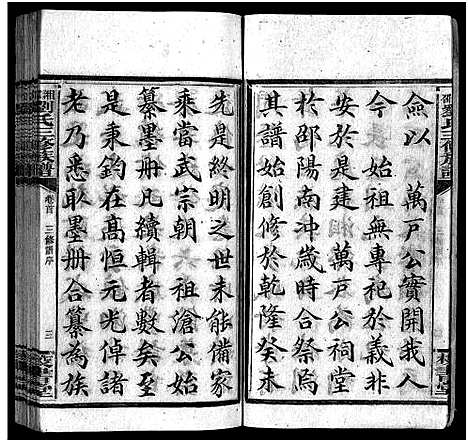 僉以 萬戶公實開我人
今 始祖無專祀於義非
安於是公建 萬戶公祠堂
於邵陽南沖歲時合祭焉
其譜創修於乾隆癸未
先是終明之世未能備家
乘當武宗朝 祖滄公始
纂墨册凡續輯者數矣至
是秉鈞在高恒元光倬諸
老乃悉取墨册合纂為族
劉氏三修族譜
卷首 三修譜序
三